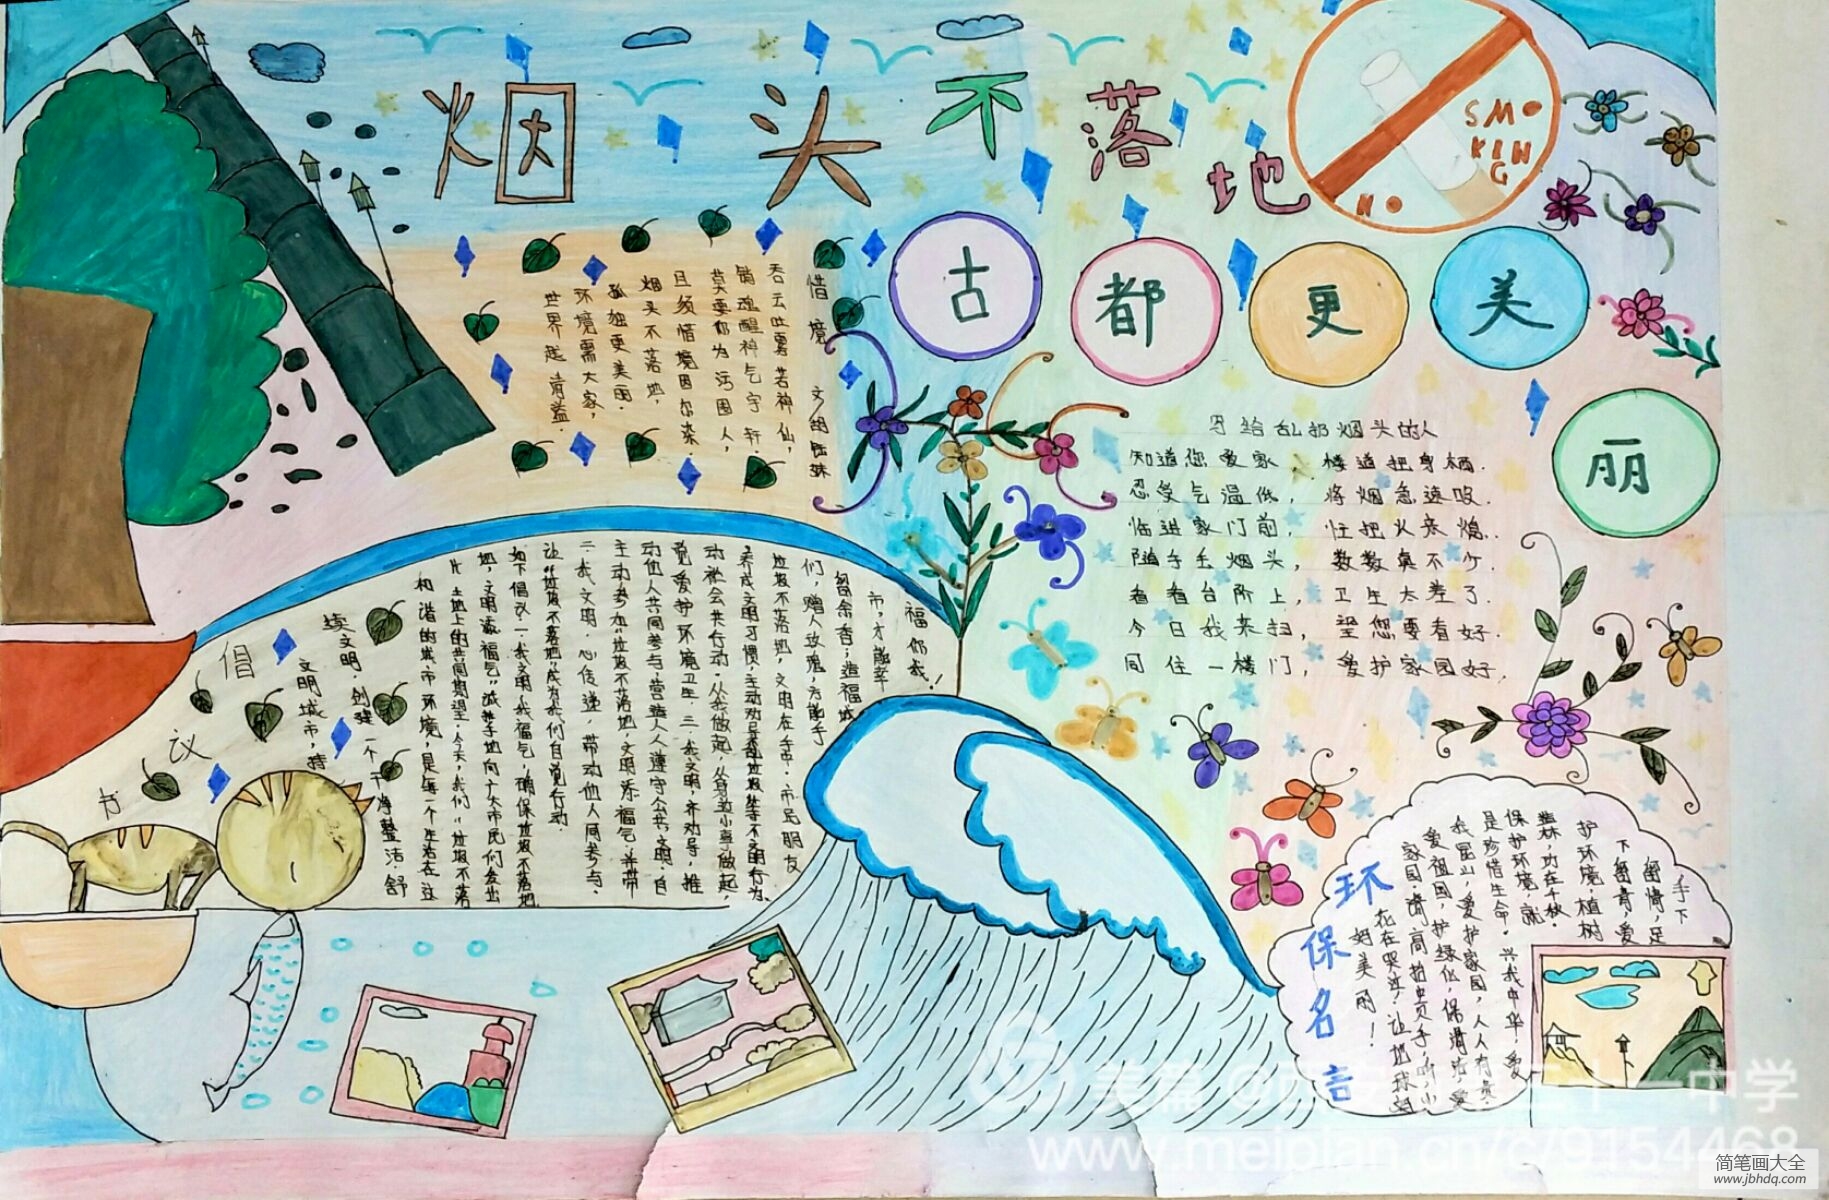 烟头不落地
古都更美丽
SMO
KIN
G
NO
惜境
吞云吐雾若神仙，
销魂醒神气宇轩.
莫要都为污国人，
且须惜境因尔染.
烟头不落地，
孤独更美丽.
环境需大家，
世界起清益.
写给乱扔烟头的人
知道您爱家，楼道把身栖.
忍受气温低，将烟急速吸.
临进家门前，忙把火来熄.
随手丢烟头，数数真不少.
看看台阶上，卫生太差了.
今日我来扫，望您要看好.
同住一楼门，爱护家园好.
倡议书
福你我！
市，才能幸
留余香；造福城
们，赠人玫瑰，方能手
垃圾不落地，文明在手中.市民朋友
养成文明习惯，主动劝导乱扔垃圾等不文明行为.
动社会共行动.从我做起，从身边小事做起，
觉爱护环境卫生.三.我文明，齐劝导.推
动他人共同参与，营造人人遵守公共文明.自
主动参加"垃圾不落地，文明添福气.并带
二.我文明.心传递，带动他人同参与.
让"垃圾不落地"成为我们自觉行动.
如下倡议一.我文明，我福气，确保垃圾不落地
地.文明添福气"诚挚地向广大市民们发出
片土地上的共同期望.今天，我们"垃圾不落
和谐的城市环境，是每一个生活在这
续文明.创建一个干净整洁.舒
文明城市，持
环保名言
手下
留情，足
下留青，爱
护环境，植树
造林，功在千秋.
保护环境，就
是珍惜生命.兴我中华，爱
我昆山，爱护家园，人人有责
爱祖国，护绿化，保清洁，爱
家园.请高抬贵手，听小小
花在哭泣！让地球
好美丽！
美篇
www.meipian.cn/c/9154468
简笔画大全
www.jbhdq.com